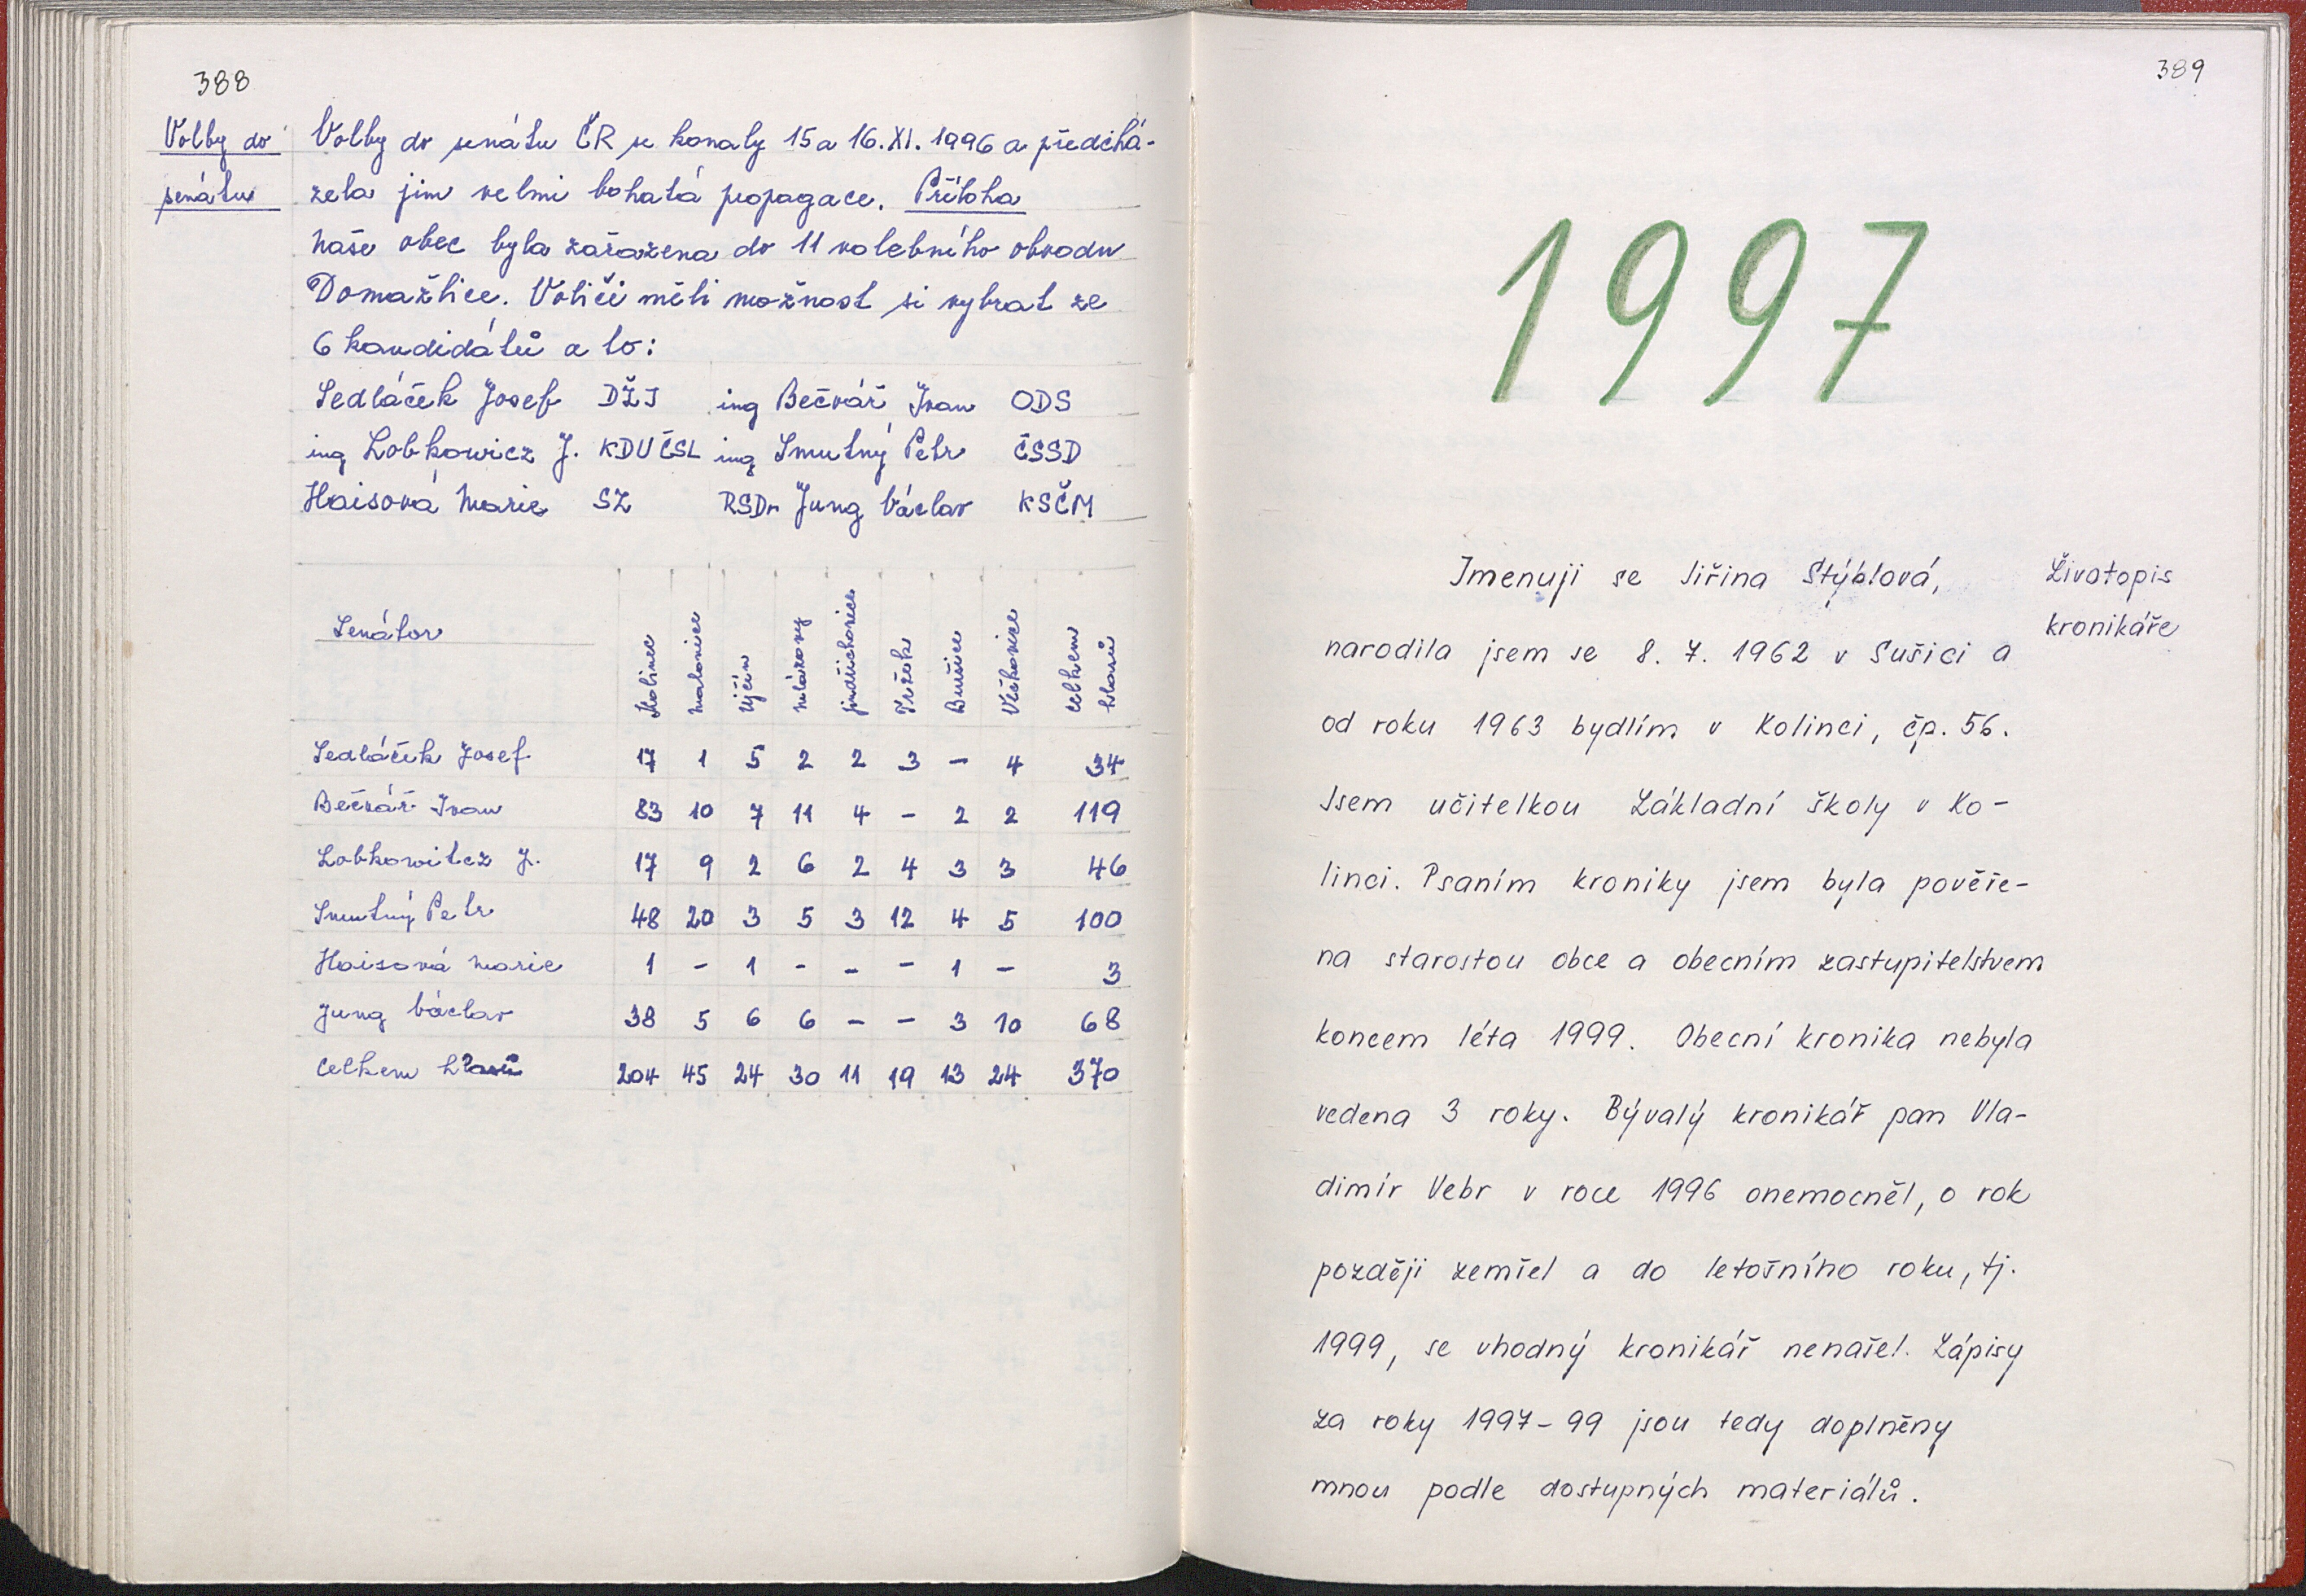 388
Volby do
senátu
Volby do senátu ČR se konaly 15 a 16. XI. 1996 a předchá-
zela jim velmi bohatá propagace. Příloha
Naše obec byla zařazena do 11 volebního obvodu
Domažlice. Voliči měli možnost si vybrat ze
6 kandidátů a to:
Sedláček Josef DŽJ ing Bečvář Ivan ODS
ing Lobkowicz J. KDUČSL ing Smutný Petr ČSSD
Haisová Marie SZ RSDr Jung Václav KSČM
Senátor Kolinec Malonice Ujčín Mlázovy Jindřichovice Tržek Buršice Včškovice celkem hlasů
Sedláček Josef 17 1 5 2 2 3 – 4 34
Bečvář Ivan 83 10 7 11 4 – 2 2 119
Lobkowitcz J. 17 9 2 6 2 4 3 3 46
Smutný Petr 48 20 3 5 3 12 4 5 100
Haisová Marie 1 – 1 – – – 1 – 3
Jung Václav 38 5 6 6 – – 3 10 68
Celkem hlasů 204 45 24 30 11 19 13 24 370
389
1997
Životopis
kronikáře
Jmenuji se Jiřina Stýblová,
narodila jsem se 8. 7. 1962 v Sušici a
od roku 1963 bydlím v Kolinci, čp. 56.
Jsem učitelkou Základní školy v Ko-
linci. Psaním kroniky jsem byla pověře-
na starostou obce a obecním zastupitelstvem
koncem léta 1999. Obecní kronika nebyla
vedena 3 roky. Bývalý kronikář pan Vla-
dimír Vebr v roce 1996 onemocněl, o rok
později zemřel a do letošního roku, tj.
1999, se vhodný kronikář nenašel. Zápisy
za roky 1997–99 jsou tedy doplněny
mnou podle dostupných materiálů.